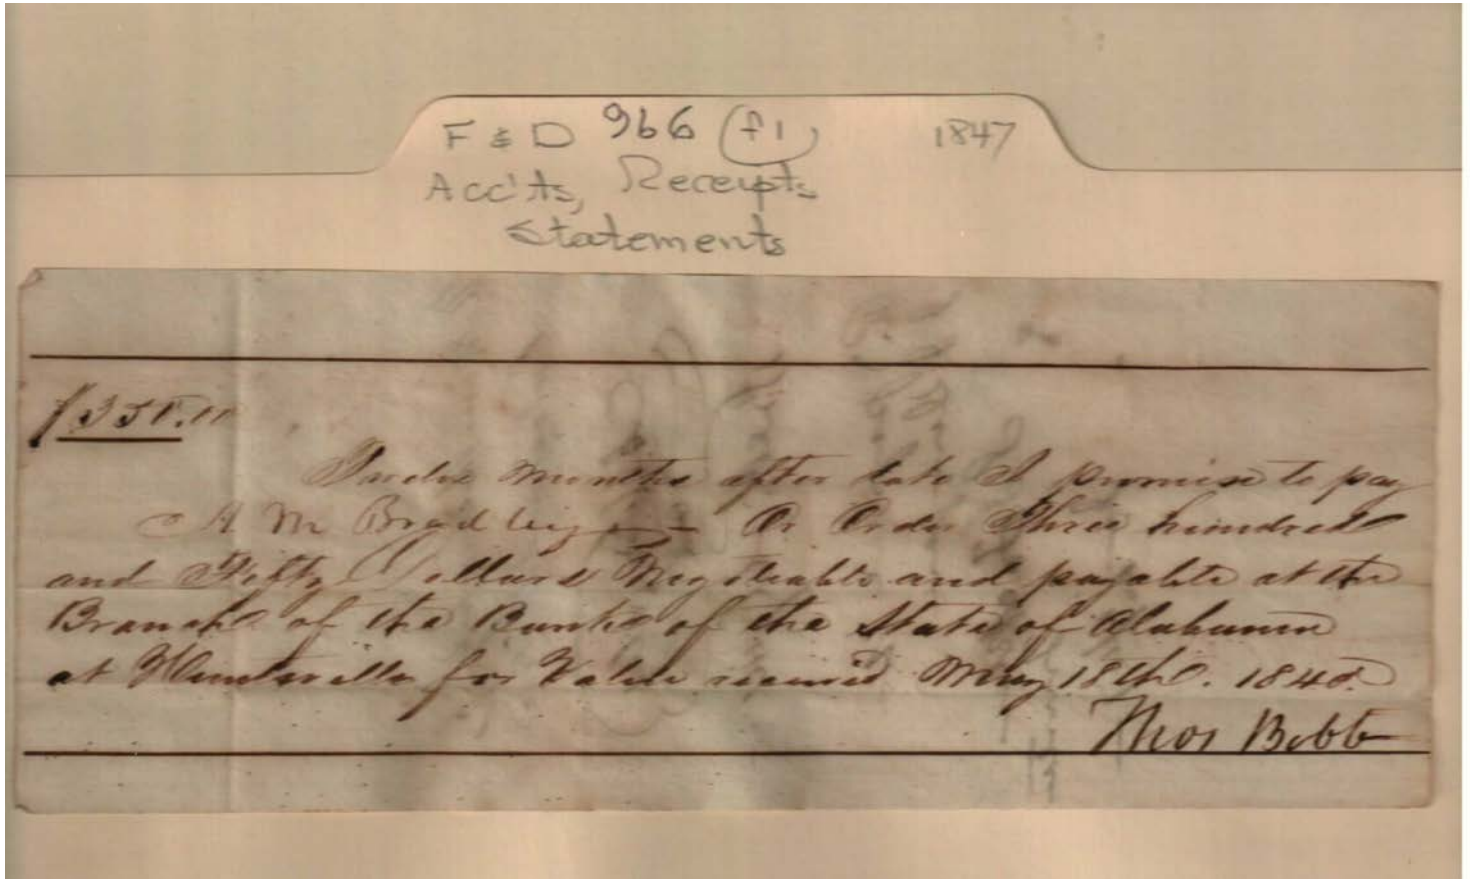 F & D 966 (f1) 1847
Acc'ts, Receipts
Statements
$350.00
Twelve months after date I promise to pay
A M Bradley Or Order Three hundred
and Fifty Dollars Negotiable and payable at the
Branch of the Bank of the State of Alabama
at Huntsville for Value received May 18th. 1840.
Thos Bibb